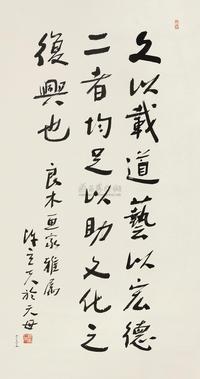 文以載道藝以宏德
二者均足以助文化之
復興也
良木画家雅属